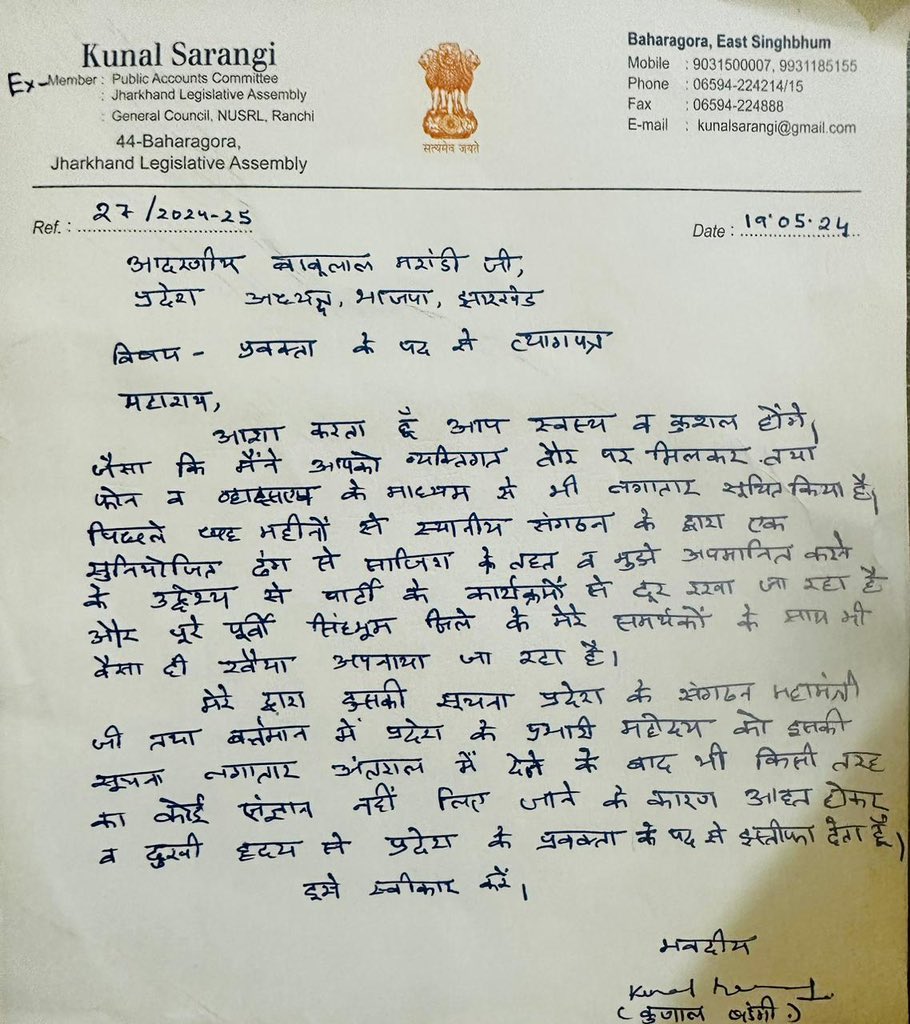 Kunal Sarangi
Ex-Member : Public Accounts Committee
: Jharkhand Legislative Assembly
: General Council, NUSRL, Ranchi
44-Baharagora,
Jharkhand Legislative Assembly
सत्यमेव जयते
Baharagora, East Singhbhum
Mobile : 9031500007, 9931185155
Phone : 06594-224214/15
Fax : 06594-224888
E-mail : kunalsarangi@gmail.com
Ref. : 27/2024-25
Date : 19.05.24
आदरणीय बाबूलाल मरांडी जी,
प्रदेश अध्यक्ष, भाजपा, झारखंड
विषय - प्रवक्ता के पद से त्यागपत्र
महाशय,
आशा करता हूँ आप स्वस्थ व कुशल होंगे।
जैसा कि मैंने आपको व्यक्तिगत तौर पर मिलकर तथा
फोन व व्हाट्सएप के माध्यम से भी लगातार सूचित किया है।
पिछले छह महीनों से स्थानीय संगठन के द्वारा एक
सुनियोजित ढंग से साजिश के तहत व मुझे अपमानित करने
के उद्देश्य से पार्टी के कार्यक्रमों से दूर रखा जा रहा है
और पूरे पूर्वी सिंहभूम जिले के मेरे समर्थकों के साथ भी
वैसा ही रवैया अपनाया जा रहा है।
मेरे द्वारा इसकी सूचना प्रदेश के संगठन महामंत्री
जी तथा वर्तमान में प्रदेश के प्रभारी महोदय को इसकी
सूचना लगातार अंतराल में देने के बाद भी किसी तरह
का कोई संज्ञान नहीं लिए जाने के कारण आहत होकर
व दुखी हृदय से प्रदेश के प्रवक्ता के पद से इस्तीफा देता हूँ।
इसे स्वीकार करें।
भवदीय
Kunal
(कुणाल षडंगी)